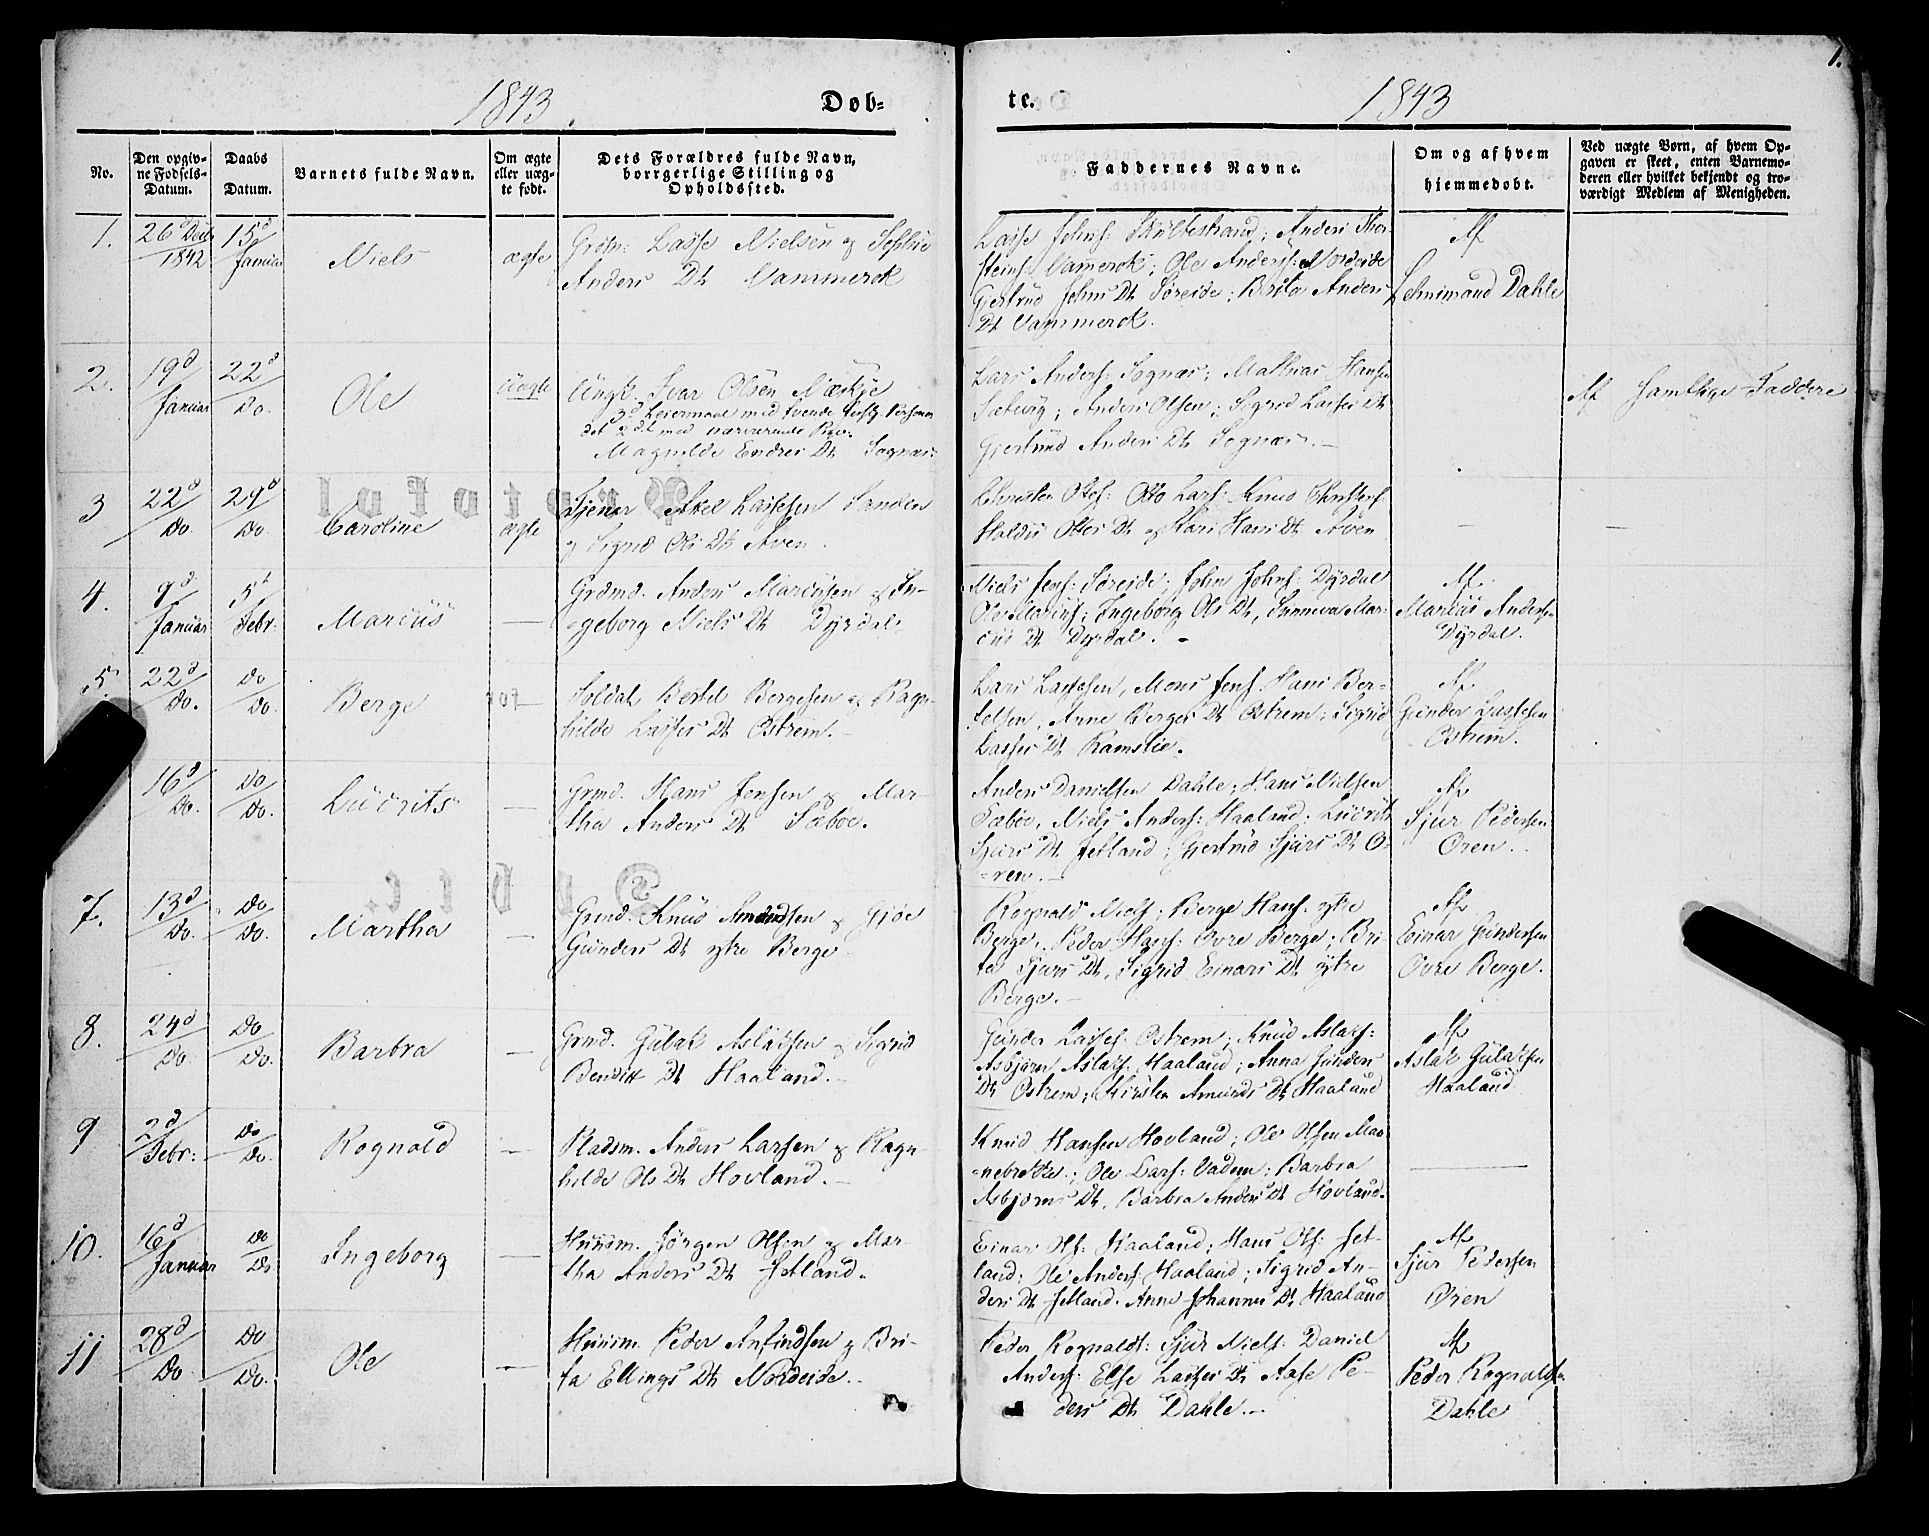 1.
1843 Dob=
te. 1843
No.
Den opgiv-
ne Fodsels-
Datum.
Daabs
Datum.
Barnets fulde Navn.
Om ægte
eller uæg-
te fodt.
Dets Forældres fulde Navn,
borrgerlige Stilling og
Opholdssted.
Faddernes Navne.
Om og af hvem
hjemmedobt.
Ved uægte Børn, af hvem Op-
gaven er skeet, enten Barnemo-
deren eller hvilket bekjendt og tro-
værdigt Medlem af Menigheden.
1. 26d Decbr 1842 15d Januar Niels ægte
Lasse Nielsen og Sophie
Anders Dt Vammerck
Lasse Johns: Anders Thor-
steins: Vamerck; Ole Anders: Nordeide
Gjertrud Johns Dt Søreide; Brita Anders
Dt Vammerck.
Af
Dahle
2. 19d Januar 22d Do. Ole Uægte
Ungk. Ivar Olsen
3d Leiermaal med tvende
det 2det med nærværende
Magnilde Endres Dt Sognæs
Lars Anders: Sognæs; Hansen
Sætevig; Anders Olsen; Sigrid Lasses Dt
Gjertrud Anders Dt Sognæs.
Af samtlige Faddere
3 22d Do. 29d Do. Caroline ægte
Tjener Axel Lassesen Sanden
og Sigrid Ols Dt Aven.
Otto Lars: Knud
Otters Dt og Kari Hans Dt Aven
4. 9d Januar 5t Febr: Marcus —
Grdmd. Anders Marcusen og In-
geborg Niels Dt Dyrdal
Niels Jens: Søreide; John Johns: Dyrdal
Ole Ingeborg Ols Dt, Sunneva Mar-
cus Dt Dyrdal.
Af
Marcus Anders:
Dyrdal.
5. 22d Do. Do Do. Berge —
Soldat Bertel Bergesen og Ragn-
hilde Lasses Dt Ostrem.
Lars Lassesen, Mons Jens: Hans Ber-
telsen, Anne Berges Dt Ostrem; Sigrid
Lasses Dt Ramslie.
Af
Gunder Lassesen
Ostrem.
16d Do. Do Do. Lucrits —
Grmd. Hans Jensen og Mar-
tha Anders Dt Sæboe.
Anders Danielsen Dahle; Hans Nielsen
Sæboe, Niels Anders: Haaland; Lucrits
Sjurs Dt Jetland; Gjertrud Sjurs Dt O-
ren.
Af
Sjur Pedersen
Oren.
7. 13d Do. Do Do. Martha —
Grmd. Knud Amundsen og Gjøe
Gunders Dt ytre Berge
Rognald Niels; Berge Hans: ytre
Berge, Peder Hans: Ovre Berge; Bri-
ta Sjurs Dt, Sigrid Einars Dt ytre
Berge.
Af
Einar Gundersen
Ovre Berge.
8. 24d Do. Do Do. Barbra —
Grmd. Gulak Aslaksen og Sigrid
Bendix Dt Haaland.
Gunder Lasses: Ostrem; Knud Aslaks:
Asbjørn Aslaks: Haaland; Anna Gunders
Dt Ostrem; Kirsten Amunds Dt Haaland
Af
Aslak Gulaksen
Haaland
9 2d Febr: Do Do. Rognald —
Pladsm. Anders Larsen og Ragn-
hilde Ols Dt Hovland.
Knud Hansen Hovland; Ole Olsen Man-
Ole Lars: Vadem; Barbra
Asbjørns Dt, Barbra Anders Dt Hovland.
10. 16d Januar Do Do Ingeborg —
Huusm. Jørgen Olsen og Mar-
tha Anders Dt Jetland.
Einar Ols: Haaland; Hans Ols: Jet-
land; Ole Anders: Haaland; Sigrid An-
ders Dt Jetland. Anne Johannes Dt Haaland
Af
Sjur Pedersen
Øren
11 28d Do. Do Do. Ole —
Huusm. Peder Anfindsen og Bri-
ta Ellings Dt Nordeide.
Peder Rognalds: Sjur Niels: Daniel
Anders: Else Lasses Dt Aase Pe-
ders Dt Dahle.
Af
Peder Rognalds
Dahle